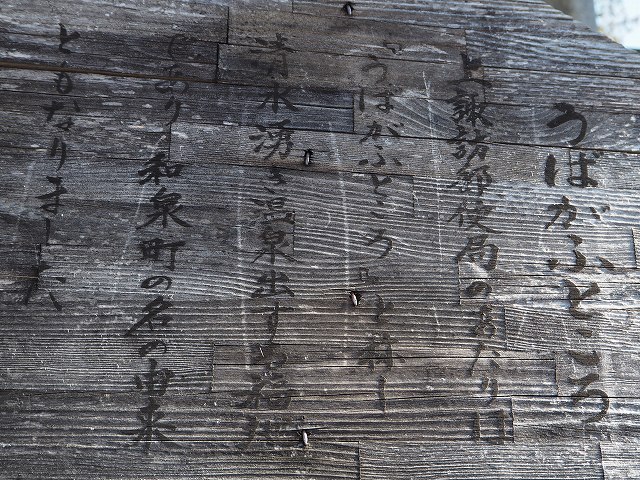 うばがふところ
上諏訪郵便局のあたりは
『うばがふところ』と称し
清水湧き温泉出ずる福地
であり、和泉町の名の由来
ともなりました